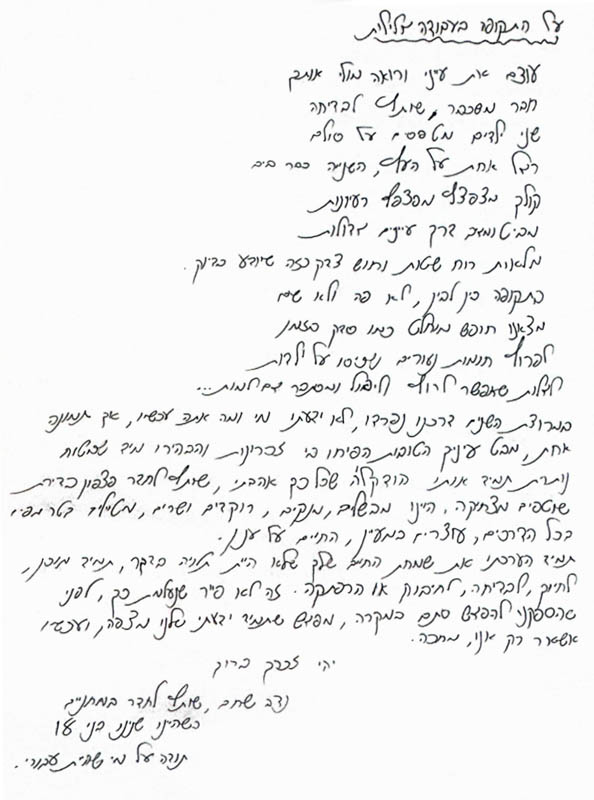 על התקופה בעבודה צלילית
עוצם את עיני ורואה מולי אותך
חבר מסכבר, שותף לבדיחה
שני ילדים מטפסים על סולם
רגל אחת על העץ, השנייה כבר בים
קולך מצפצף מפצפץ רעיונות
מביט ומגיב דרך עיניים גדולות
מלאות רוח שטות וחוש צדק כזה שיודע בדיוק.
בתקופה בין לבין, לא פה ולא שם
מצאנו חופש מוחלט כמו סדק בזמן
לפרוץ חומות נטורים שביססו על ילדות
לגלות שאפשר לרוץ וליפול ומסתבר גם למות...
במרוצת השנים דרכנו נפרדו, לא ידעתי מי ומה אתה עכשיו, אך תמונה
אחת, מבט עיניך הטובות הפיחו בי זכרונות והבהירו מיד שבטוח
נותרת תמיד אותו הודקלה שכל כך אהבתי, שותף לחדר פצפון בדירת
שוטפים מצחיקה, היינו מבשלים, מנקים, רוקדים ושרים, מטיילים בטרמפים
בכל הדרכים, עוצרים במעיין, החיים על ענן.
תמיד הערכתי את שמחת החיים שלך שלא היית תלויה בדבר, תמיד מוכן,
לחיוך, לבדיחה, לחיבוק או הרפתקה. זה לא פייר שנעלמת כך, לפני
שהספקנו להפגש סתם במקרה, מפגש שתמיד ידעתי שלנו מצפה, ועכשיו
אשאר רק אני, מחכה.
יהי זכרך ברוך
נדב שחם, שותף לחדר במתניים
כשהיינו שנינו בני 18
תודה על מי שהיית עבורי.